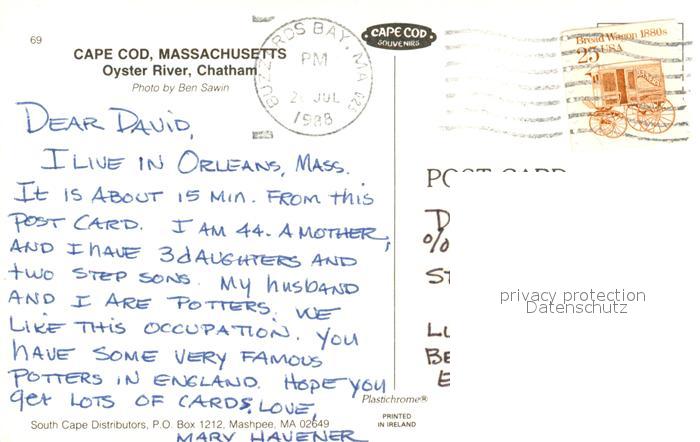 69
CAPE COD, MASSACHUSETTS
Oyster River, Chatham
Photo by Ben Sawin
CAPE COD
SOUVENIRS
BUZZARDS BAY, MA 025
PM
JUL
1988
Bread Wagon 1880s
25 USA
DEAR DAVID,
I LIVE IN ORLEANS, MASS.
IT IS ABOUT 15 MIN. FROM this
POST CARD. I AM 44. A MOTHER,
AND I hAVE 3 dAUGHTERS AND
two STEP SONS. My husband
AND I ARE POTTERS. WE
LIKE THIS OCCUPATION. YOU
hAVE SOME VERY FAMOUS
POTTERS IN ENGLAND. HOPE YOU
get LOTS OF CARDS. LOVE,
MARY HAVENER
South Cape Distributors, P.O. Box 1212, Mashpee, MA 02649
Plastichrome®
PRINTED
IN IRELAND
D
%
ST
LU
BE
E
privacy protection
Datenschutz